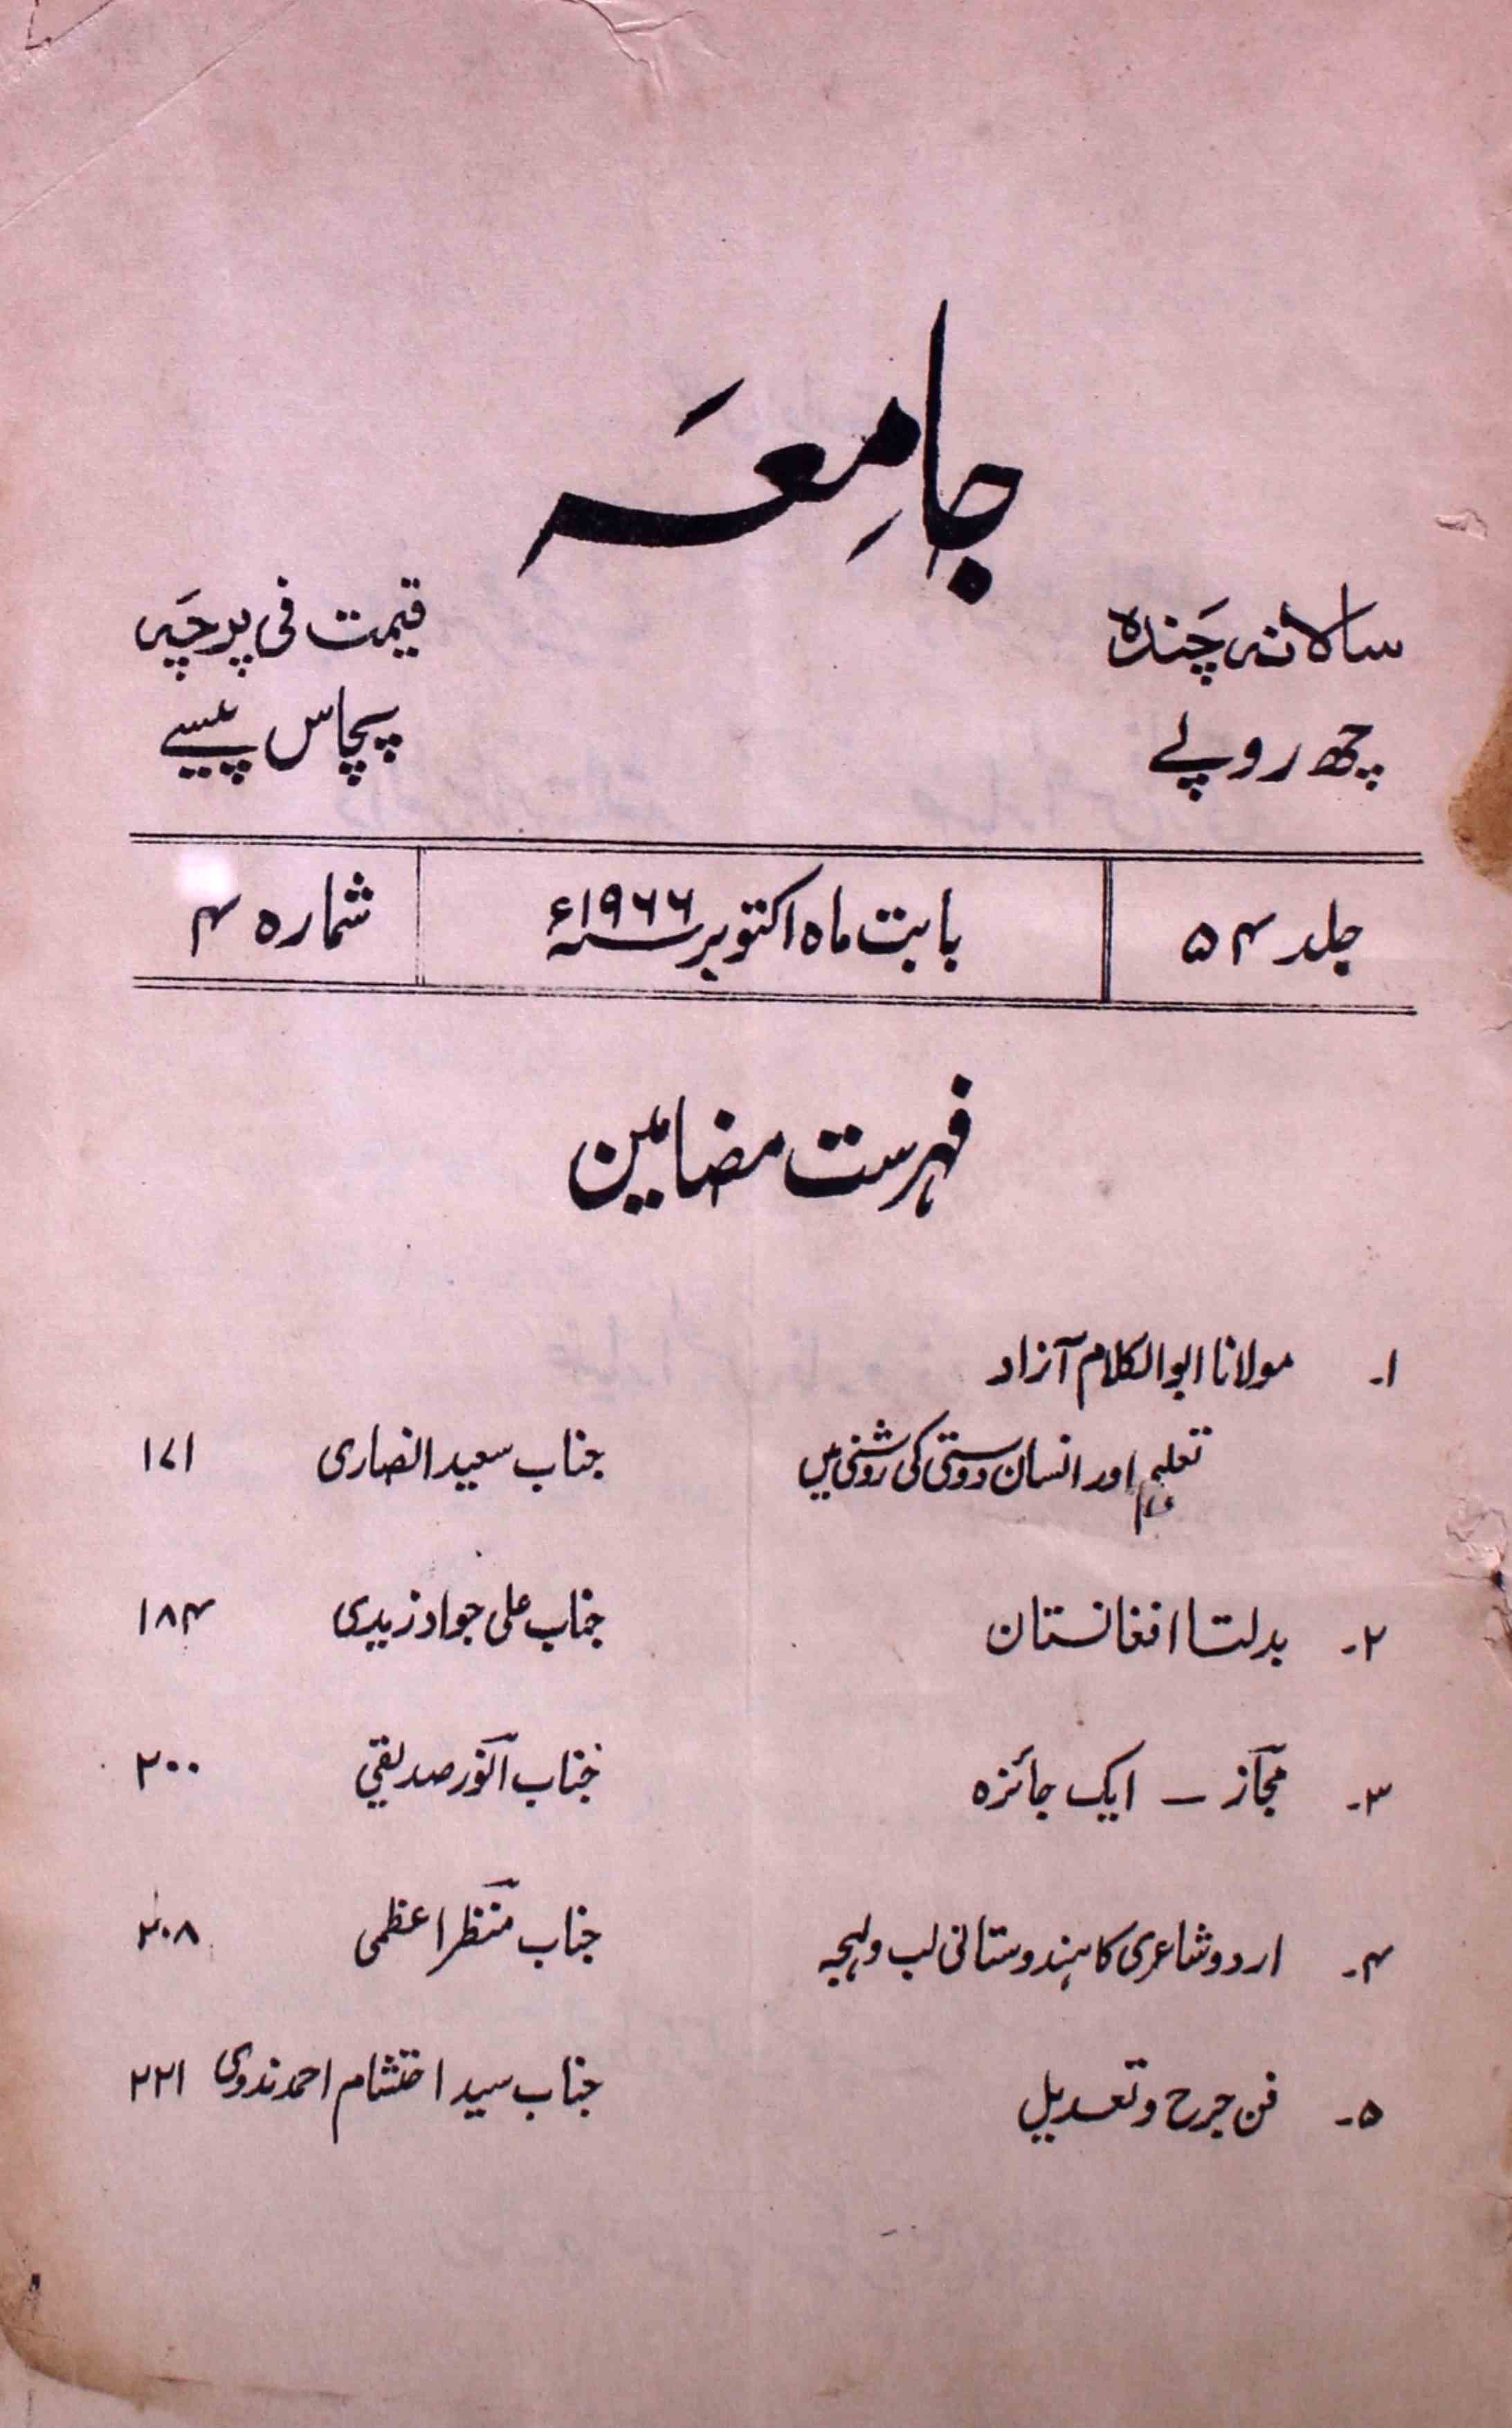 جامعہ
سالانہ چندہ
چھ روپے
قیمت فی پرچہ
پچاس پیسے
جلد ۵۴
بابت ماہ اکتوبر ۱۹۶۶ء
شمارہ ۴
فہرست مضامین
۱۔ مولانا ابوالکلام آزاد
تعلیم اور انسان دوستی کی روشنی میں جناب سعید انصاری ۱۷۱
۲۔ بدلتا افغانستان جناب علی جواد زیدی ۱۸۴
۳۔ مجاز ــ ایک جائزہ جناب انور صدیقی ۲۰۰
۴۔ اردو شاعری کا ہندوستانی لب ولہجہ جناب منظر اعظمی ۲۰۸
۵۔ فن جرح و تعدیل جناب سید احتشام احمد ندوی ۲۲۱